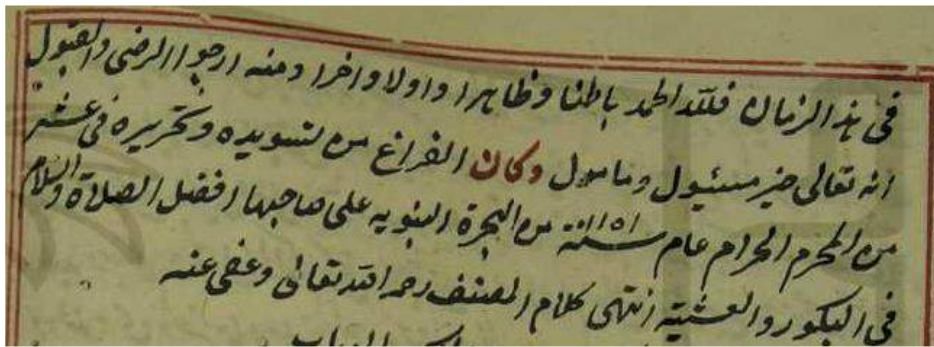 فى هذا الزمان فلله الحمد باطنا وظاهرا واولا واخرا ومنه ارجوا الرضى والقبول
انه تعالى خير مسئول ومامول وكان الفراغ من تسويده وتحريره فى عشر
من المحرم الحرام عام سنة ١١٥١ من الهجرة النبويه على صاحبها افضل الصلاة والسلام
فى البكور والعشية انتهى كلام المصنف رحمه الله تعالى وعفى عنه